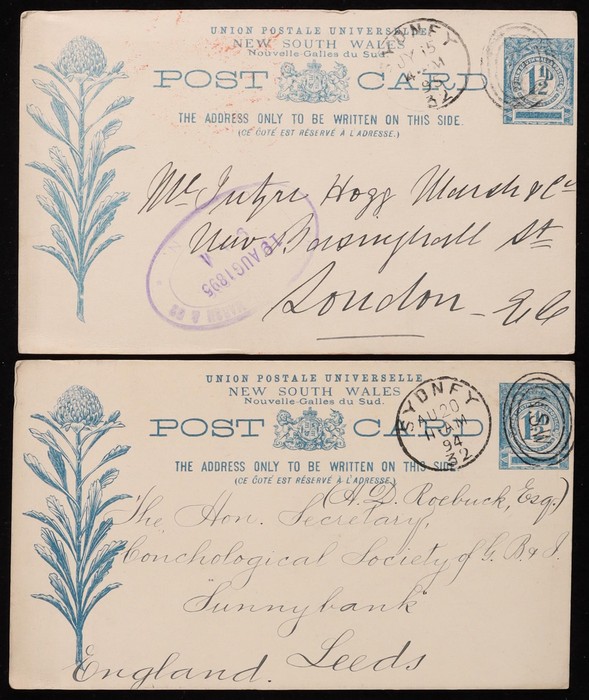 UNION POSTALE UNIVERSELLE
NEW SOUTH WALES
Nouvelle-Galles du Sud.
POST CARD
SYDNEY
JY 15
95
32
1½D
THE ADDRESS ONLY TO BE WRITTEN ON THIS SIDE.
(CE CÔTÉ EST RÉSERVÉ À L'ADRESSE.)
McIntyre Hogg Marsh & Co
New Basinghall St
London E.C
19 AUG 1895
A
UNION POSTALE UNIVERSELLE
NEW SOUTH WALES
Nouvelle-Galles du Sud.
POST CARD
SYDNEY
AU 20
94
32
NSW
THE ADDRESS ONLY TO BE WRITTEN ON THIS SIDE
(CE CÔTÉ EST RÉSERVÉ À L'ADRESSE.)
(A. D. Roebuck, Esq.)
The Hon. Secretary,
Conchological Society of G. B. & I.
"Sunnybank"
Leeds
England.